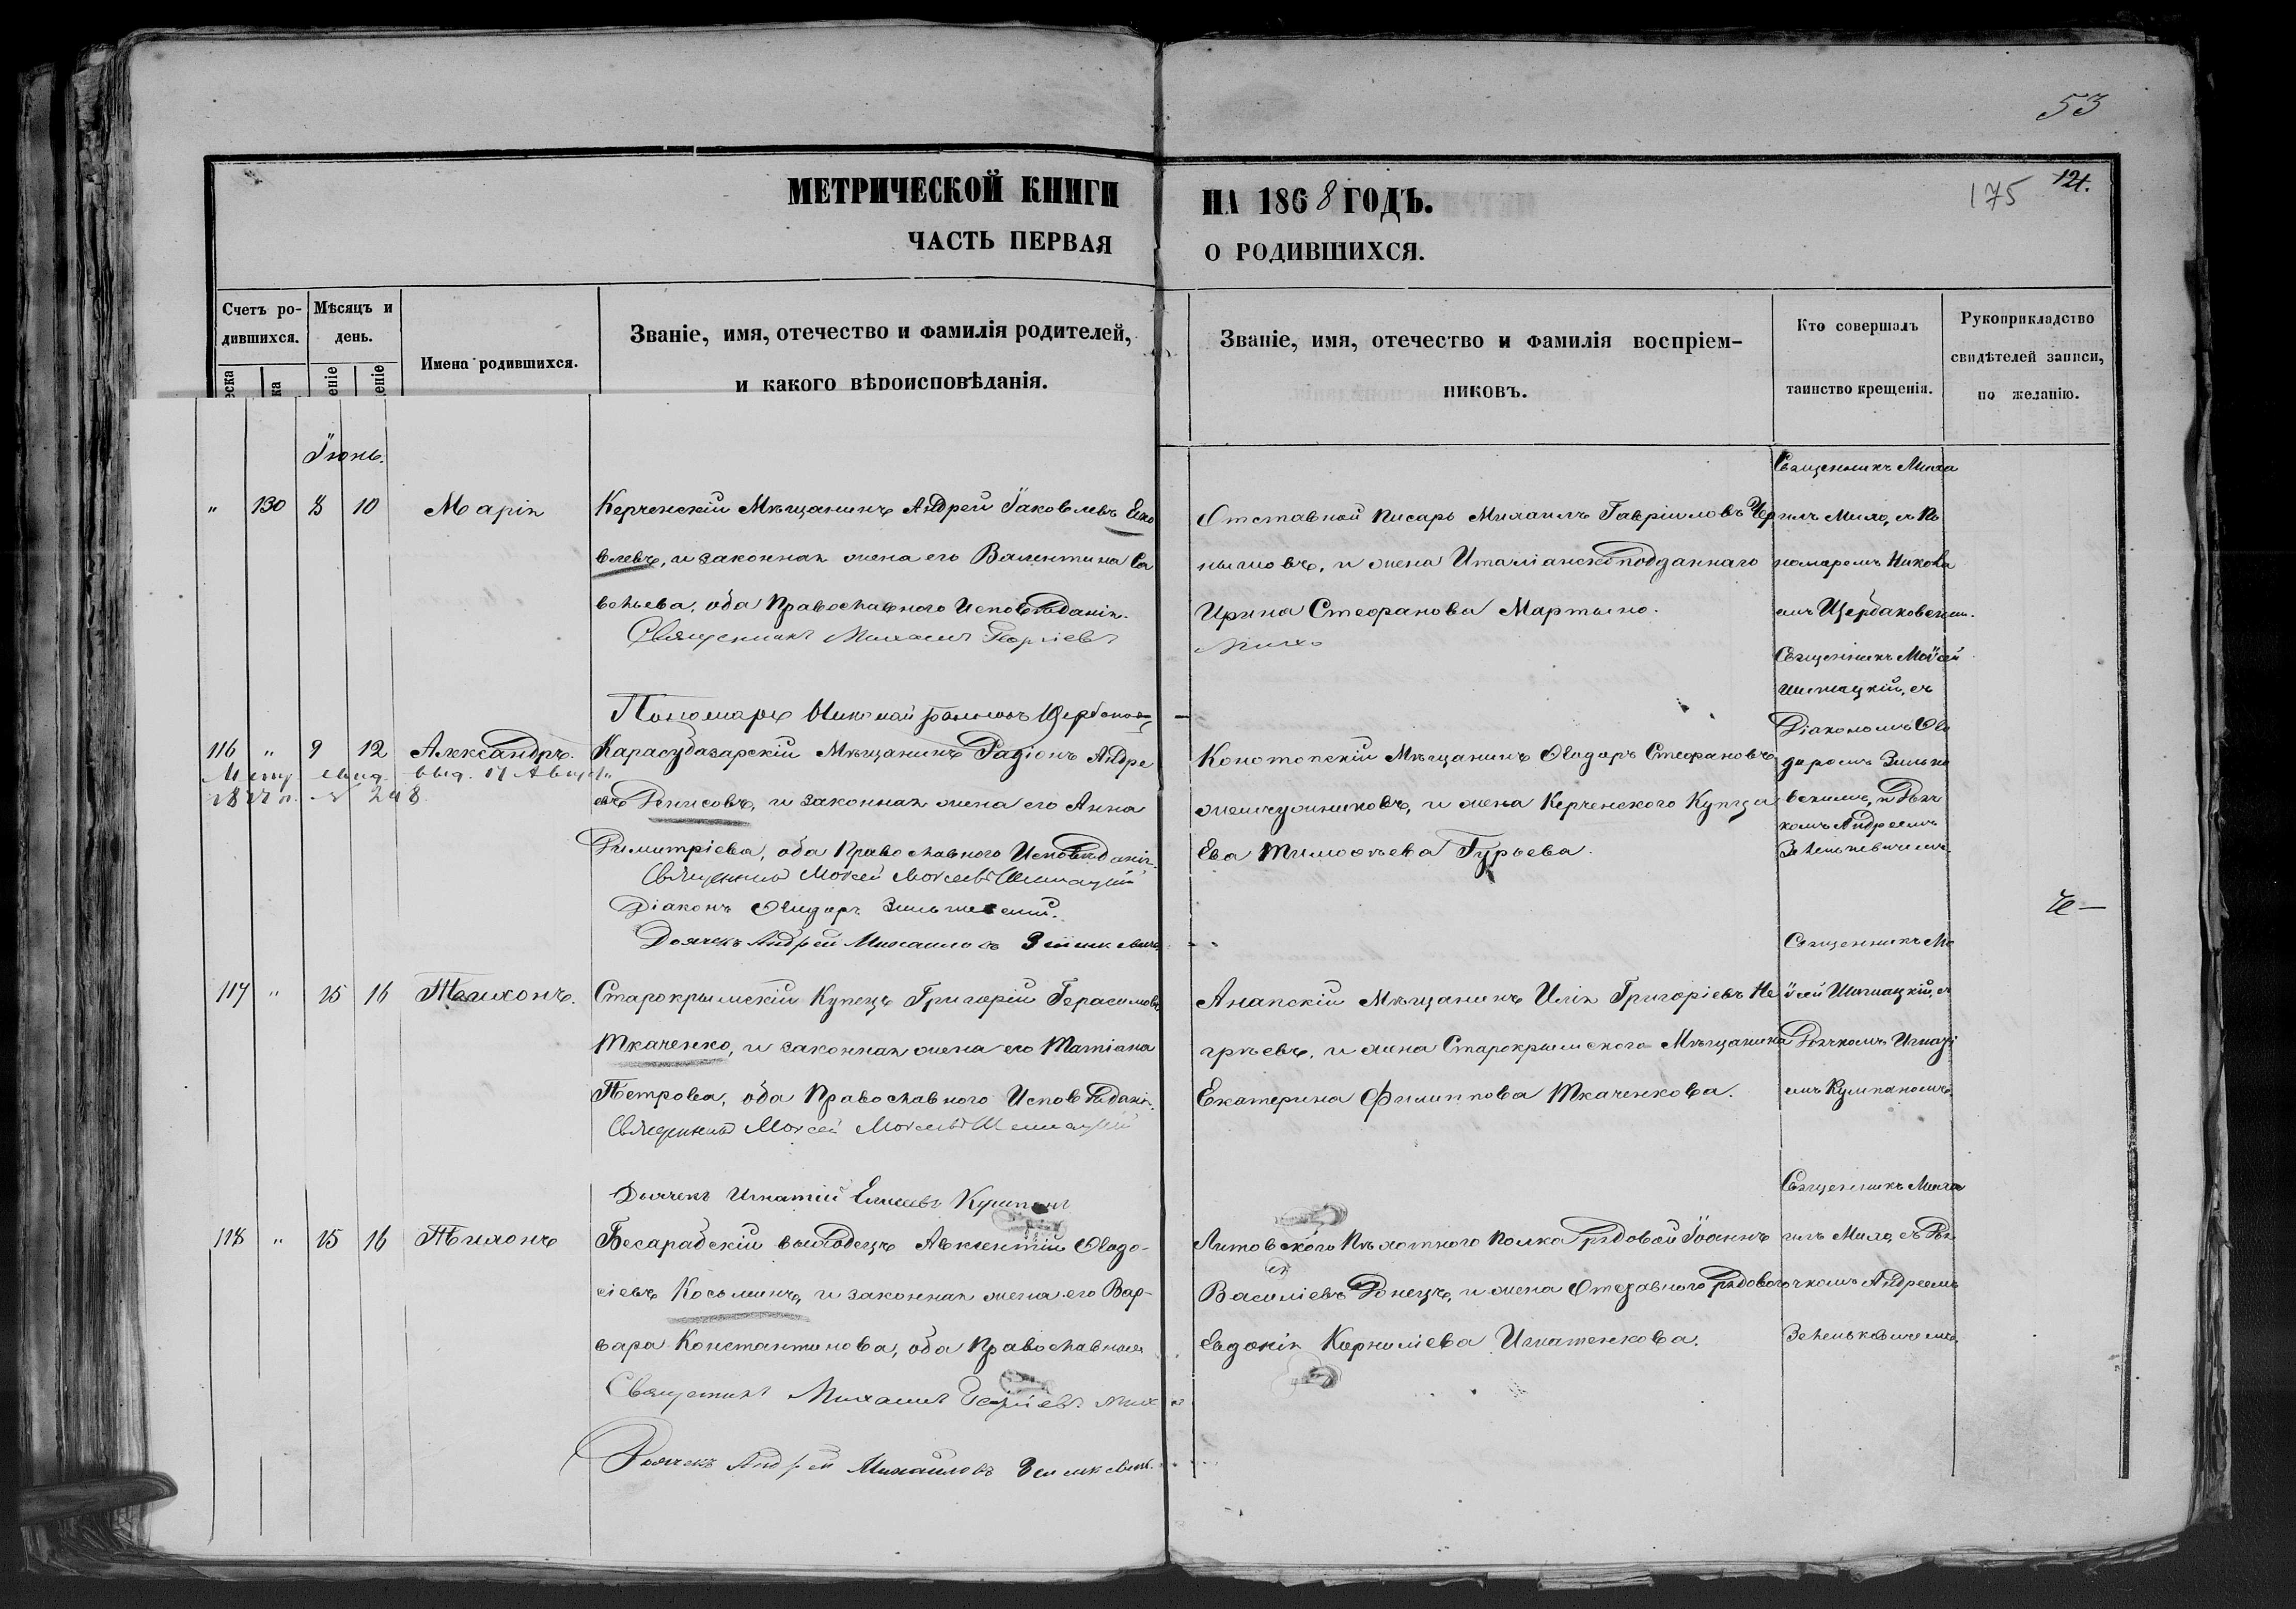 53
МЕТРИЧЕСКОЙ КНИГИ НА 1868 ГОДЪ.
175 121.
ЧАСТЬ ПЕРВАЯ О РОДИВШИХСЯ.
Счетъ родившихся.
Мѣсяцъ и день.
Имена родившихся.
Званіе, имя, отечество и фамилія родителей,
и какого вѣроисповѣданія.
Званіе, имя, отечество и фамилія воспріем-
никовъ.
Кто совершалъ
таинство крещенія.
Рукоприкладство
свидѣтелей записи,
по желанію.
Іюнь.
" 130 8 10 Марія
Керченскій Мѣщанинъ Андрей Іаковлевъ
влевъ, и законная жена его Валентина Са
вельева, оба Православного Исповѣданія.
Священникъ Михаилъ Георгіевъ
Михо
Пономарь Николай Щербаков
Отставной писарь Михаилъ Гавріиловъ Чер
нышовъ, и жена Италіанскоподданнаго
Ирина Стефанова Мартыно.
Священникъ Миха
илъ Михо, съ По
номаремъ Никола
емъ Щербаковскимъ.
116 " 9 12 Александръ.
Метр. свид. выд. 17 Августа
№ 248
Карасубазарскій Мѣщанинъ Радіонъ Андре
евъ Денисовъ, и законная жена его Анна
Димитріева, оба Православного Исповѣданія.
Священникъ Моисей Моисеевъ
Діаконъ Ѳеодоръ
Дьячекъ Андрей Михаиловъ
Конотопскій Мѣщанинъ Ѳеодоръ Стефановъ
жемчужниковъ, и жена Керченского Купца
Ева Тимофѣева Гурьева.
Священникъ Моѵсей
съ
Діакономъ Ѳео
доромъ
и Дьяч
комъ Андреемъ
Зеленкевичемъ.
117 " 15 16 Тихонъ.
Старокрымскій Купецъ Григорій Герасимовъ
Ткаченко, и законная жена его Татіана
Петрова, оба Православного Исповѣданія.
Священникъ Моисей Моисеевъ
Дьячекъ Игнатій Елисеевъ Кумпанъ
Анапскій Мѣщанинъ Илія Григоріевъ Не
грѣевъ, и жена Старокрымского Мѣщанина
Екатерина Филиппова Ткаченкова.
Священникъ Мо
ѵсей съ
Дьячкомъ Игнаті
емъ Кумпаномъ.
118 " 15 16 Тихонъ
Бесарабскій выходецъ Авксентій Ѳеодо-
сіевъ Косьминъ, и законная жена его Вар-
вара Константинова, оба Православныя
Священникъ Михаилъ Георгіевъ Михо
Дьячекъ Андрей Михаиловъ
Литовского Пѣхотного полка рядовой Іоаннъ
Василіевъ Донецъ, и жена Отставного рядового
Евдокія Корниліева Игнатенкова.
Священникъ Миха
илъ Михо, съ Дья
чкомъ Андреемъ
Зеленьковичемъ.